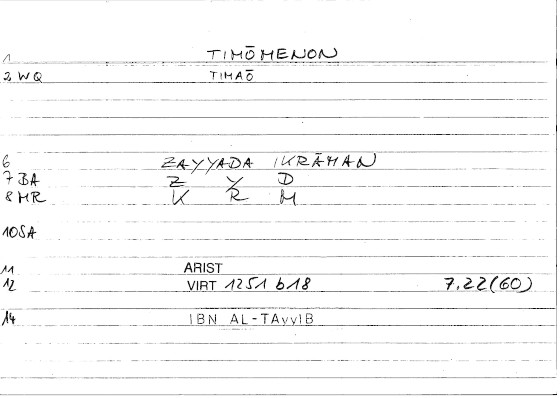 1 TIMŌMENON
2 WQ TIMAŌ
6 ZAYYADA IKRĀMAN
7 BA Z Y D
8 MR K R M
10 SA
11 ARIST
12 VIRT 1251 b18 7,22(60)
14 IBN AL-TAyyIB